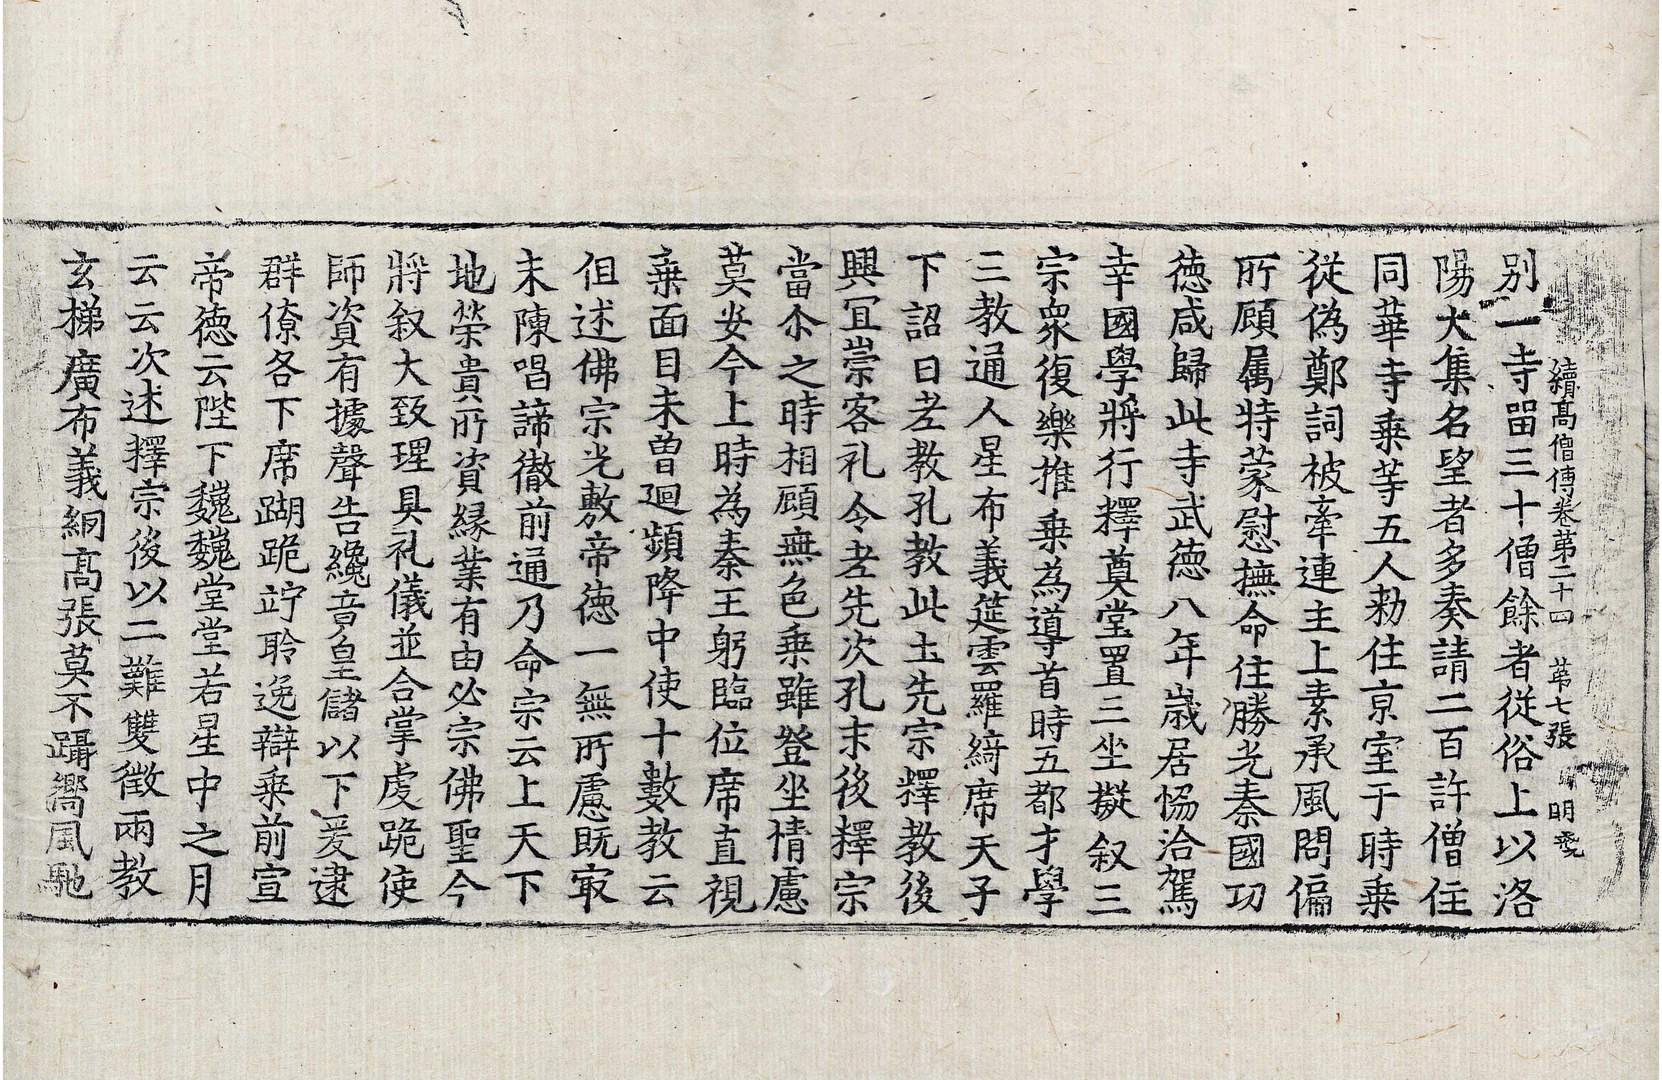 續高僧傳卷第二十四 第七張 明
別一寺留三十僧餘者從俗上以洛
陽大集名望者多奏請二百許僧住
同華寺乗等五人勑住京室于時乗
從偽鄭詞被牽連主上素承風問偏
所顧属特蒙慰撫命住勝光秦國功
徳咸歸此寺武徳八年歳居恊洽駕
幸國學將行釋奠堂置三坐擬叙三
宗衆復樂推乗為導首時五都才學
三教通人星布義筵雲羅綺席天子
下詔曰老教孔教此土先宗釋教後
興冝崇客礼令老先次孔末後釋宗
當尒之時相顧無色乗雖登坐情慮
莫安今上時為秦王躬臨位席直視
乗面目未曽廻頻降中使十數教云
但述佛宗光敷帝徳一無所慮既冣
末陳唱諦徹前通乃命宗云上天下
地榮貴所資縁業有由必宗佛聖今
將叙大致理具礼儀並合掌虔跪使
師資有據聲告纔竟皇儲以下爰逮
群僚各下席䠒跪竚聆逸辯乗前宣
帝徳云陛下巍巍堂堂若星中之月
云云次述釋宗後以二難雙徵兩教
玄梯廣布義網高張莫不躡嚮風馳